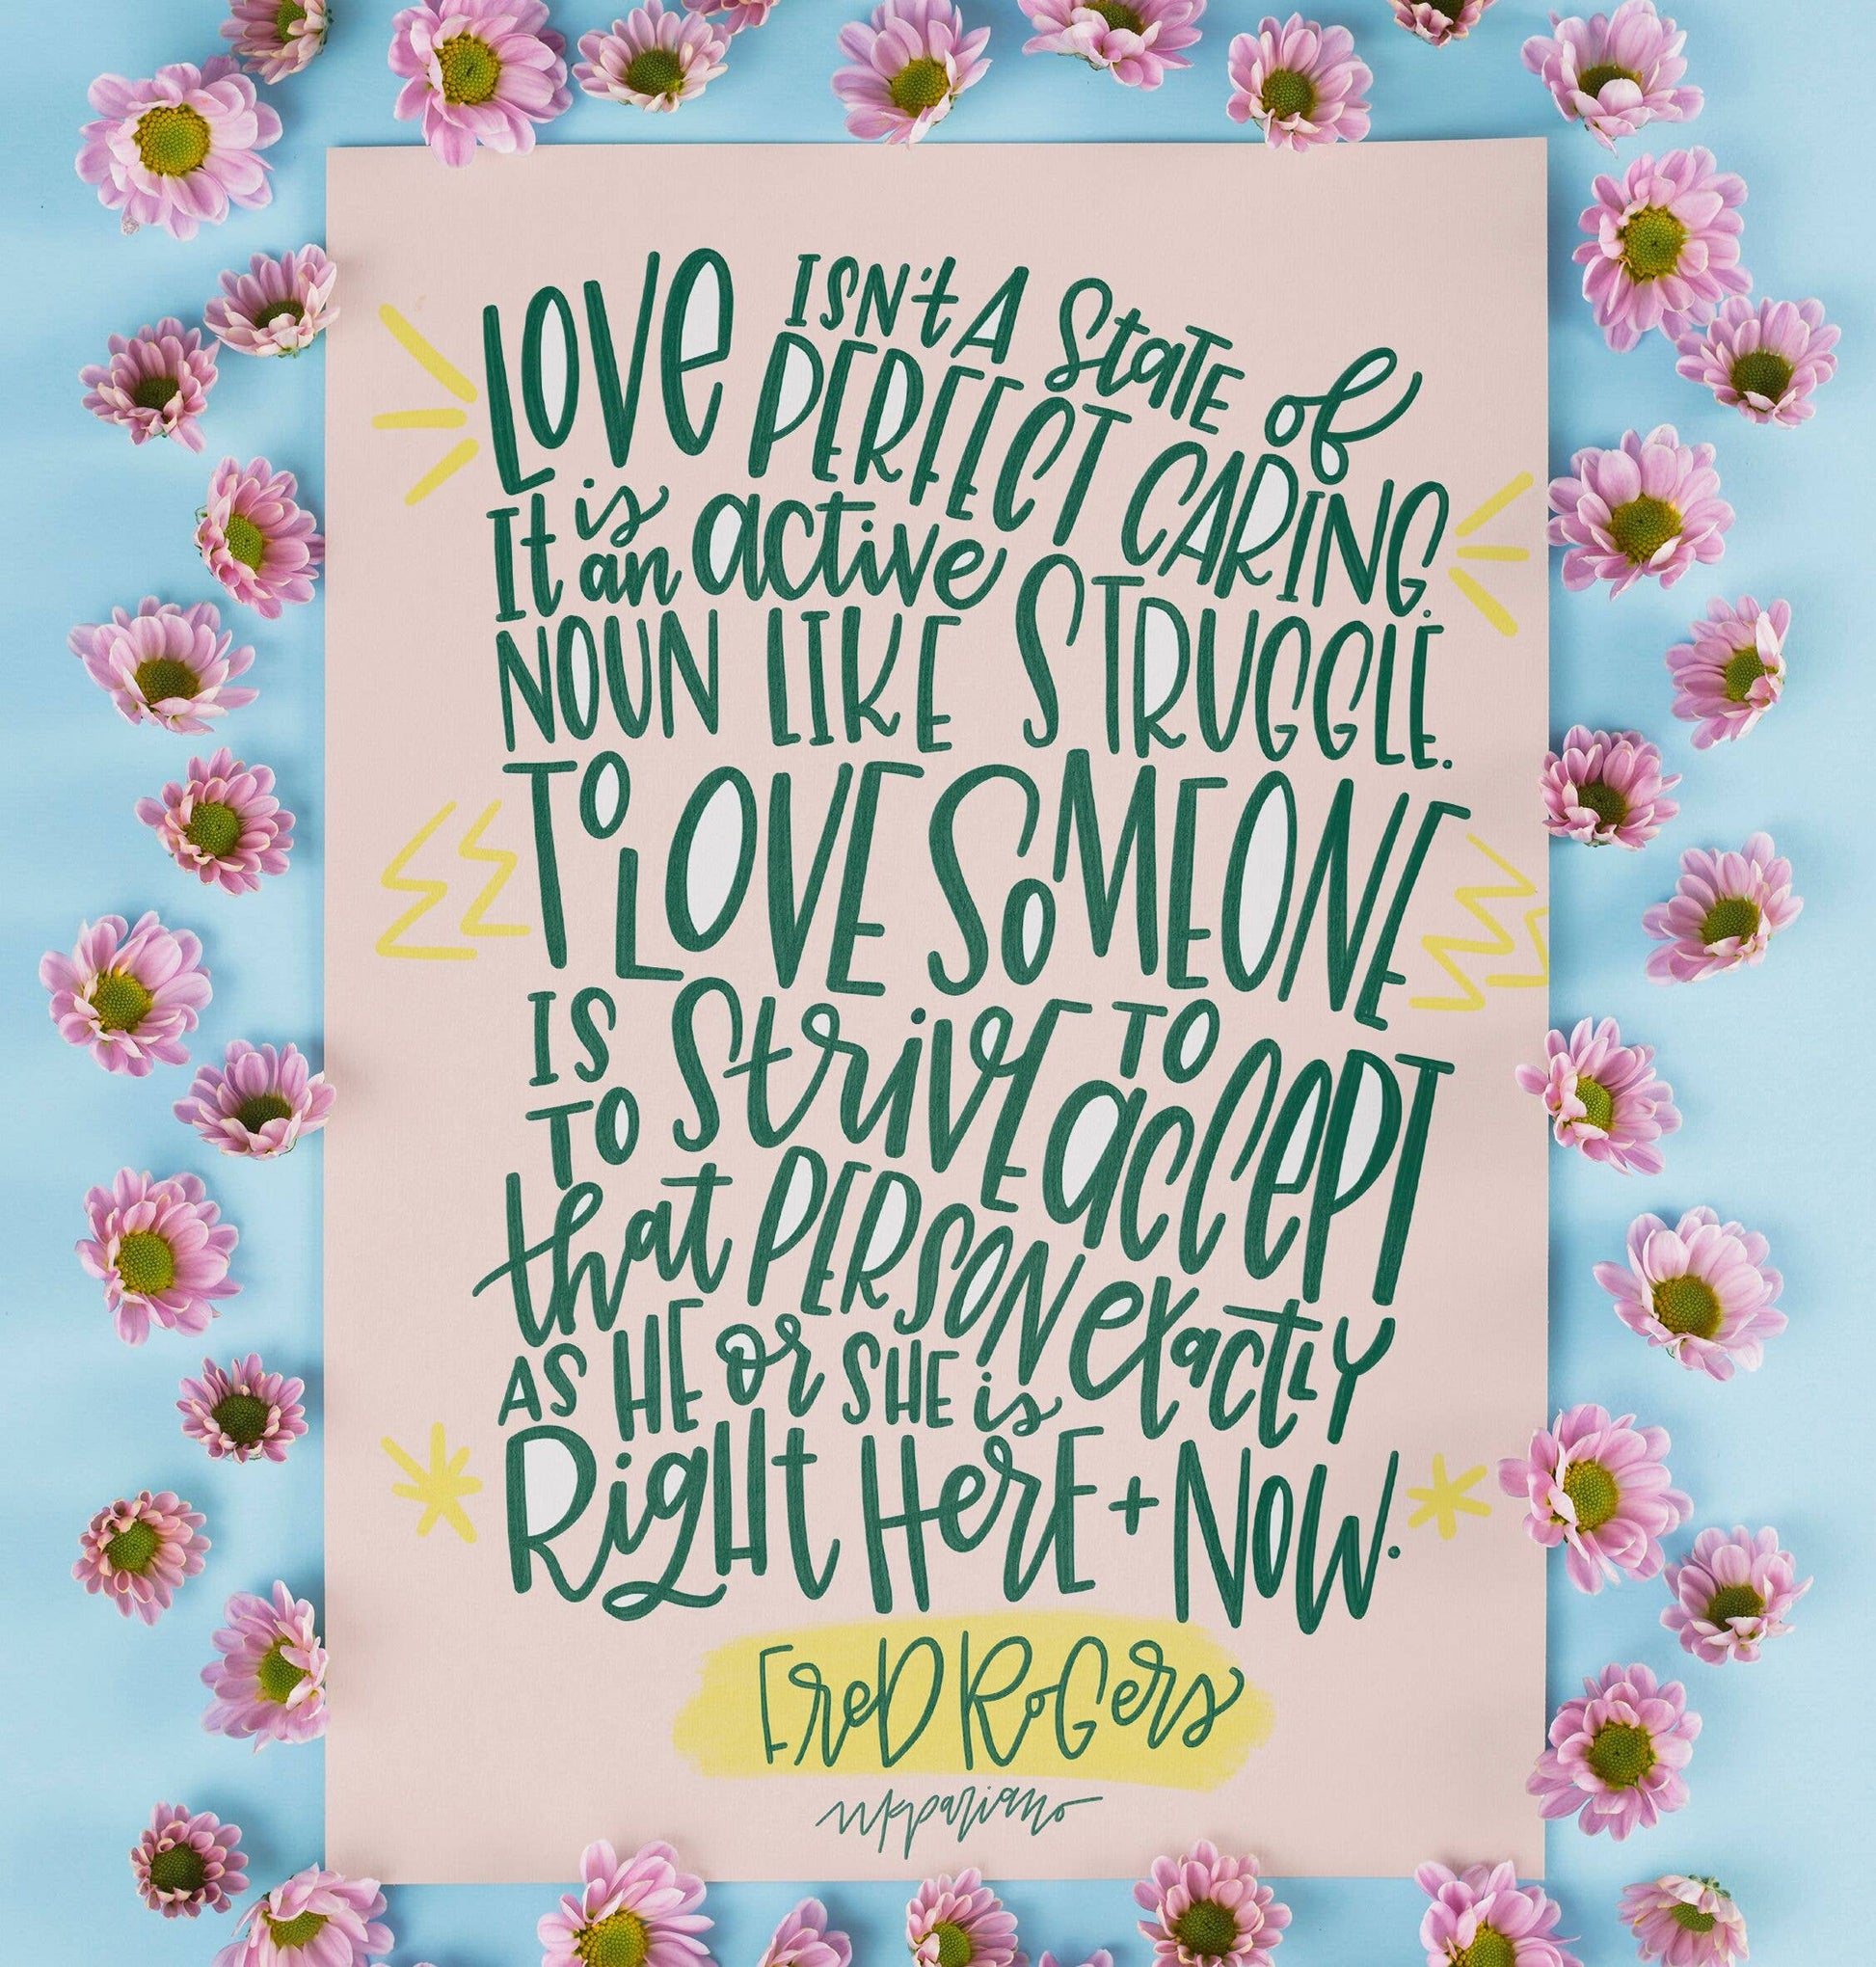 LOVE ISN'T A State of
PERFECT CARING.
It is an active
NOUN LIKE STRUGGLE.
TO LOVE SOMEONE
IS TO Strive TO accept
that PERSON exactly
AS HE or SHE is
Right Here + Now.
Fred Rogers
mkpariano